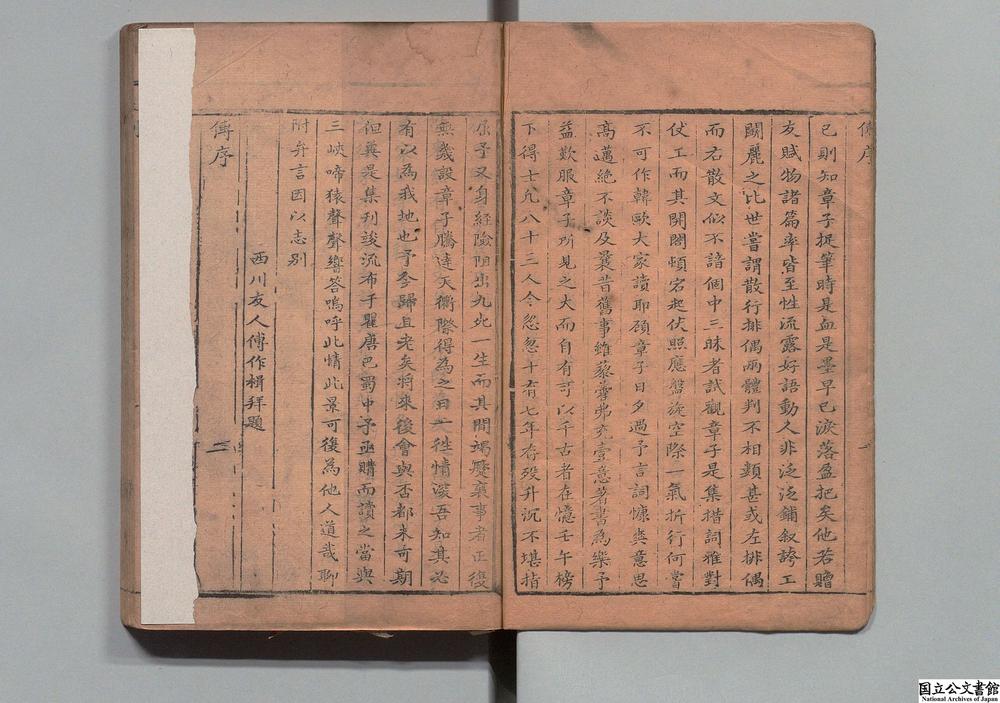 傅序
已則知章子捉筆時是血是墨早已淚落盈把矣他若贈
友賦物諸篇率皆至性流露好語動人非泛泛鋪叙誇工
鬭麗之比世嘗謂散行排偶兩體判不相類甚或左排偶
而右散文似不諳個中三昧者試觀章子是集措詞雅對
仗工而其開闔頓宕起伏照應盤旋空際一氣折行何嘗
不可作韓歐大家讀耶顧章子日夕過予言詞慷爽意思
高邁絶不談及曩昔舊事雖藜藿弗充壹意著書為樂予
益歎服章子所見之大而自有可以千古者在憶壬午榜
下得士凢八十三人今忽忽十有七年存殁升沉不堪指
屈予又身經險阻出九死一生而其間竭蹷襄事者正復
無幾設章子騰達天衢際得為之日一往情深吾知其必
有以為我地也予今歸且老矣將來後會與否都未可期
但冀是集刊竣流布于瞿唐巴蜀中予亟購而讀之當與
三峽啼猿聲聲響答嗚呼此情此景可復為他人道哉聊
附弁言因以志别
西川友人傅作楫拜題
傅序
二
國立公文書館
National Archives of Japan